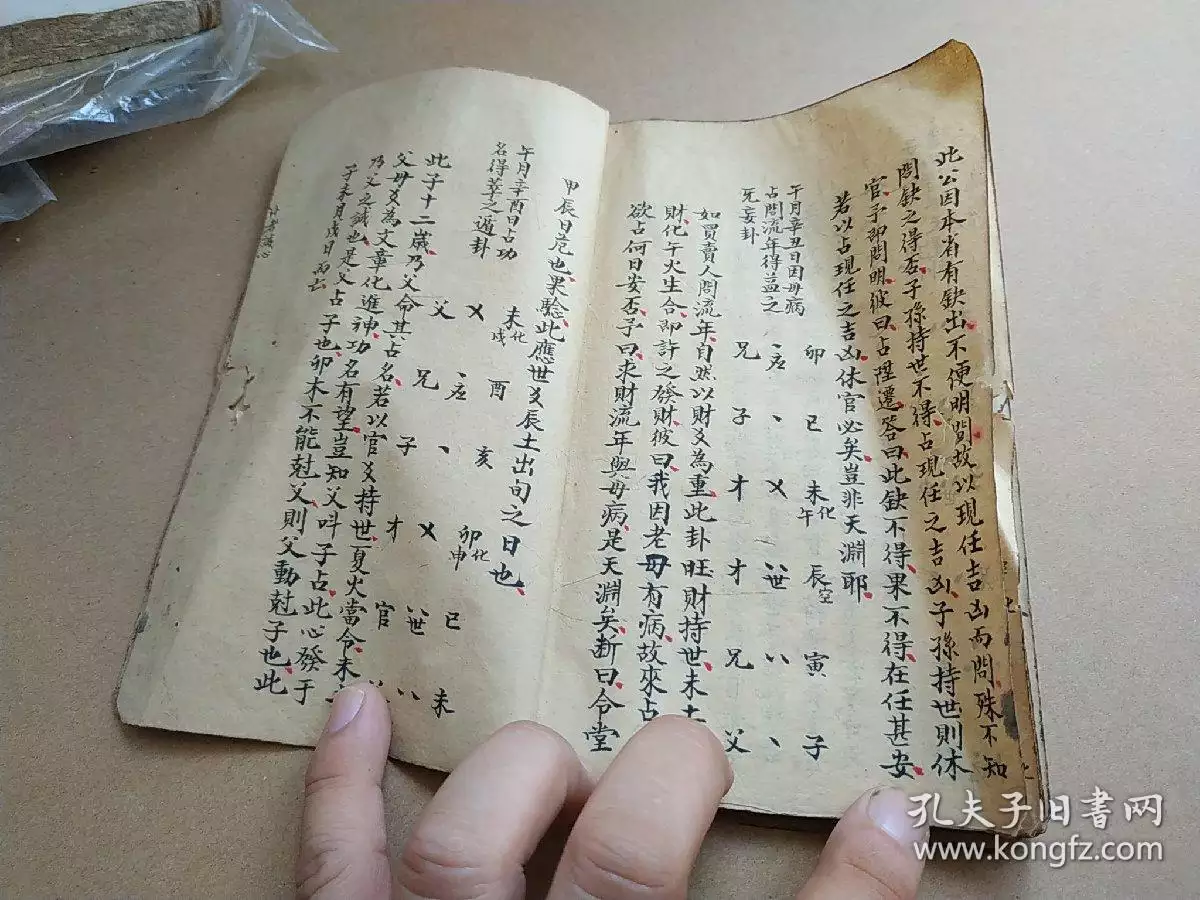 此公因本省有缺出不便明問故以現任吉凶而問殊不知
問缺之得否子孫持世不得占現任之吉凶子孫持世則休
官予即問明彼曰占陞遷答曰此缺不得果不得在任甚安
若以占現任之吉凶休官必矣豈非天淵耶
午月辛丑日因母病
占問流年得益之
无妄卦
卯 巳 未化午 辰空 寅 子
兄 子 才 才 兄 父
應 世
如買賣人問流年自然以財爻為重此卦旺財持世未土
財化午火生合即許之發財彼曰我因老母有病故來占
欲占何日安否予曰求財流年與母病是天淵矣斷曰令堂
甲辰日危也果驗此應世爻辰土出旬之日也
午月辛酉日占功
名得萃之遁卦
未化戌 酉 亥 卯化申 巳 未
父 兄 子 才 官
應 世
此子十二歲乃父命其占名若以官爻持世夏火當令未
父母爻為文章化進神功名有望豈知父呌子占此心發于
乃父之誠也是父占子也卯木不能尅父則父動尅子也此
子未月戊日而亡
孔夫子旧書网
www.kongfz.com